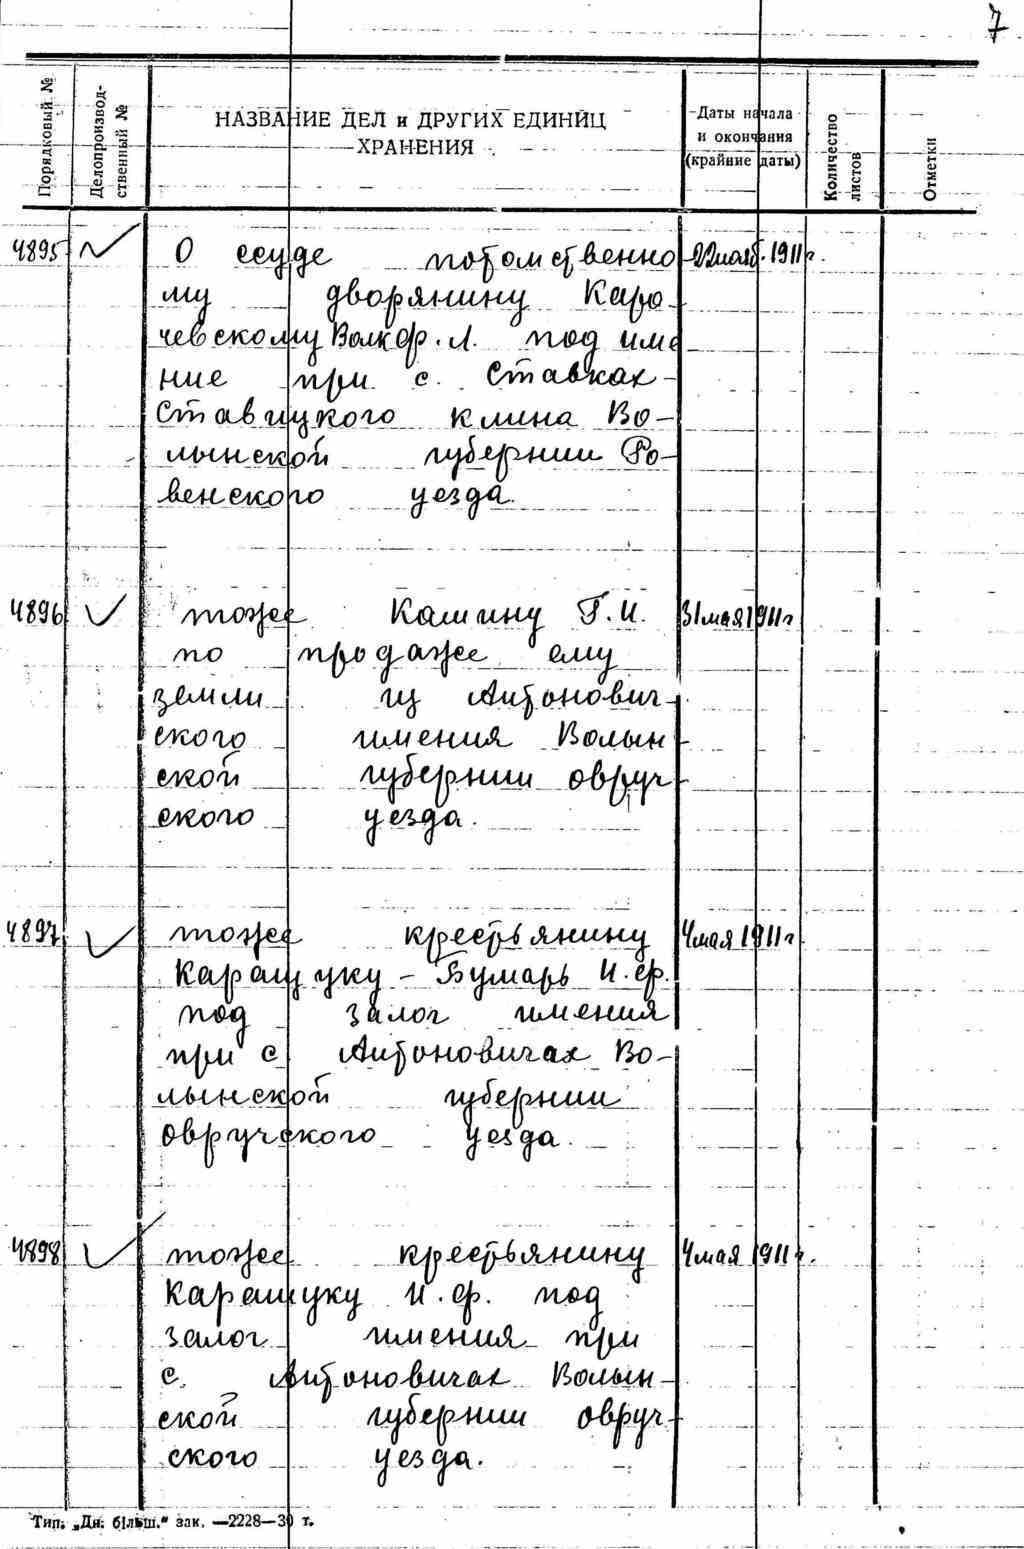 7
Порядковый №
Делопроизвод-
ственный №
НАЗВАНИЕ ДЕЛ и ДРУГИХ ЕДИНИЦ
ХРАНЕНИЯ
Даты начала
и окончания
(крайние даты)
Количество
листов
Отметки
4895 О ссуде потомственно 22 нояб. 1911 г.
му дворянину Каро-
чевскому Волк Ф. Л. под име
ние при с. Ставках
Ставицкого клина Во-
лынской губернии Ро-
венского уезда.
4896 тоже Кашину Г. И. 31 мая 1911 г
по продаже ему
земли из Антонович-
ского имения Волын
ской губернии овруч
ского уезда.
4897 тоже крестьянину 4 мая 1911 г
Каращуку - Бумарь И. Ф.
под залог имения
при с Антоновичах Во-
лынской губернии
Овручского уезда.
4898 тоже крестьянину 4 мая 1911 г.
Каращуку И. Ф. под
залог имения при
с. Антоновичах Волын-
ской губернии овруч-
ского уезда.
Тип. „Дн. більш." зак. —2228—30 т.